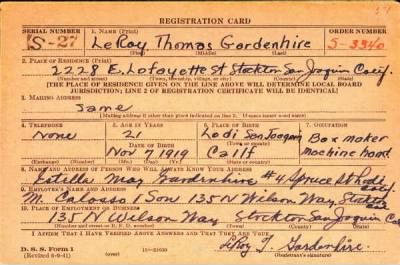 REGISTRATION CARD
SERIAL NUMBER 1. NAME (Print) ORDER NUMBER
S-27 LeRoy Thomas Gardenhire S-3340
(First) (Middle) (Last)
2. PLACE OF RESIDENCE (Print)
2228 E. Lafayette St Stockton San Joaquin Calif.
(Number and street) (Town, township, village, or city) (County) (State)
[THE PLACE OF RESIDENCE GIVEN ON THE LINE ABOVE WILL DETERMINE LOCAL BOARD
JURISDICTION; LINE 2 OF REGISTRATION CERTIFICATE WILL BE IDENTICAL]
3. MAILING ADDRESS
Same
[Mailing address if other than place indicated on line 2. If same insert word same]
4. TELEPHONE 5. AGE IN YEARS 6. PLACE OF BIRTH 7. OCCUPATION
None 21 Lodi San Joaquin Box maker
DATE OF BIRTH
Nov 7 1919 Calif machine hand
(Exchange) (Number) (Mo.) (Day) (Yr.) (State or country)
8. NAME AND ADDRESS OF PERSON WHO WILL ALWAYS KNOW YOUR ADDRESS
Estella May Gardenhire #4 Spruce St Lodi Calif
9. EMPLOYER'S NAME AND ADDRESS
M. Calosso & Son 135 N Wilson Way, Stockton
10. PLACE OF EMPLOYMENT OR BUSINESS
135 N Wilson Way Stockton San Joaquin Cal
(Number and street or R. F. D. number) (Town) (County) (State)
I AFFIRM THAT I HAVE VERIFIED ABOVE ANSWERS AND THAT THEY ARE TRUE.
D. S. S. Form 1
(Revised 6-9-41) LeRoy T. Gardenhire.
(Registrant's signature)